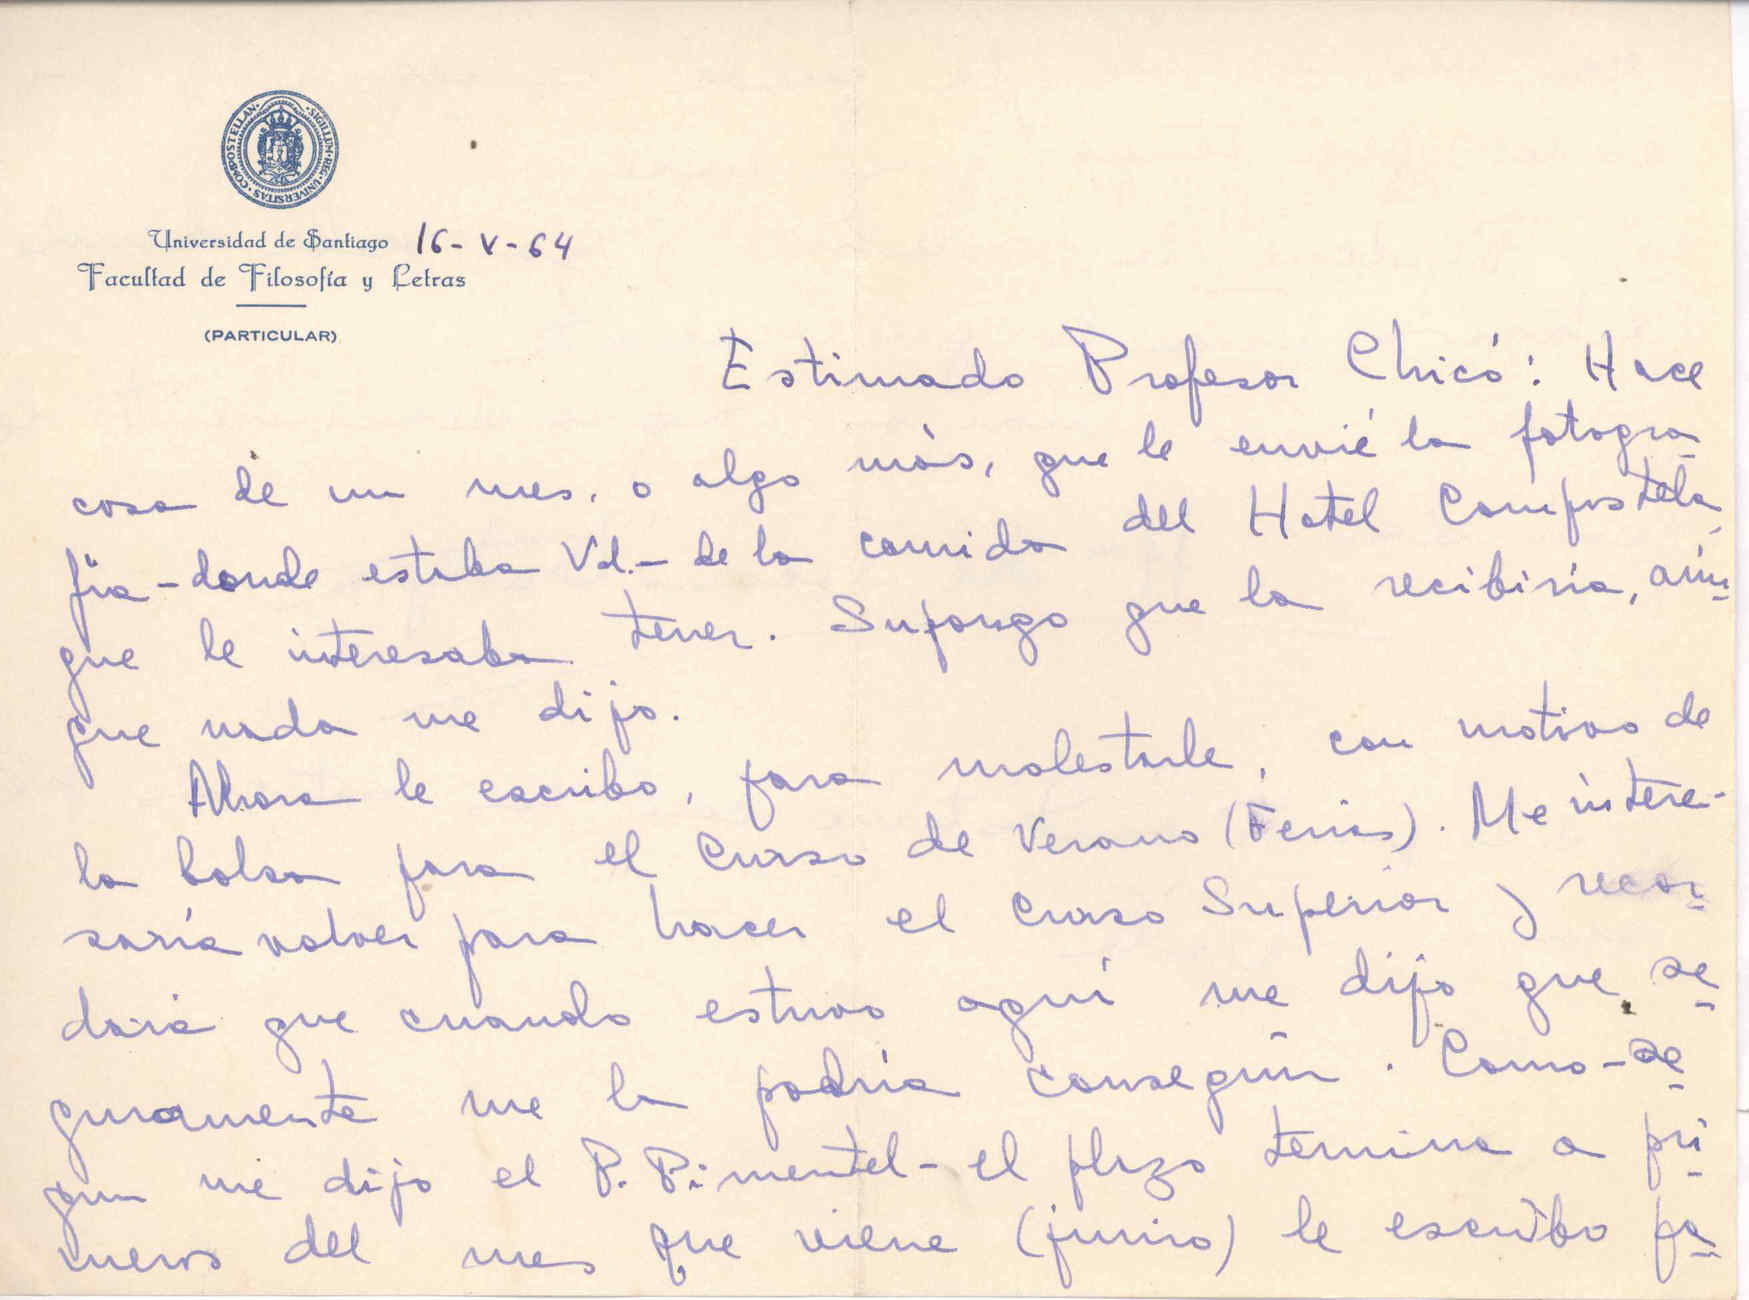 SIGILLUM·REG·UNIVERSITAS·COMPOSTELLAN·
Universidad de Santiago 16-V-64
Facultad de Filosofía y Letras
(PARTICULAR)
Estimado Profesor Chicó: Hace
cosa de un mes, o algo más, que le envié la fotogra
fia - donde estaba Vd. - de la comida del Hotel Compostela,
que le interesaba tener. Supongo que la recibiría, aun-
que nada me dijo.
Ahora le escribo, para molestarle, con motivo de
la bolsa para el Curso de Verano (Ferias). Me intere-
saría volver para hacer el Curso Superior y recor-
dará que cuando estuvo aquí me dijo que se-
guramente me la podría conseguir. Como - se-
gun me dijo el P. Pimentel - el plazo termina a pri-
meros del mes que viene (junio) le escribo pa-